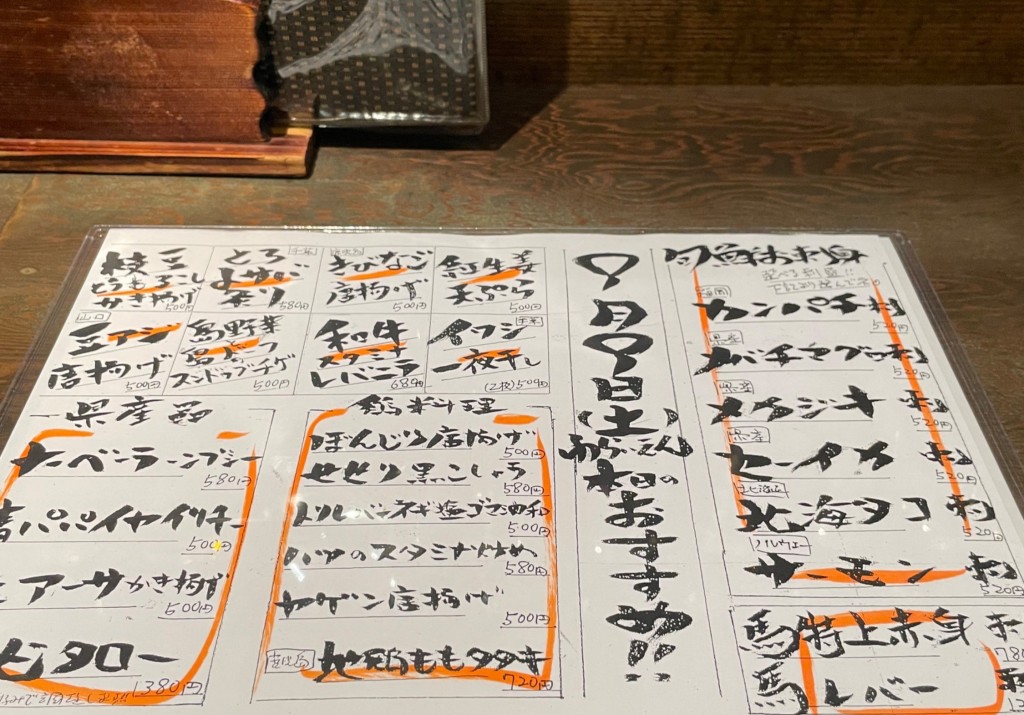 鮮お刺身
選べる
福岡
カンパチ刺
520円
県産
メバチマグロ刺
520円
県産
メカジキ 刺
520円
県産
セーイカ 刺
520円
北海道
北海タコ 刺
520円
ノルウェー
サーモン 刺
520円
馬特上赤身 刺
馬レバー 刺
9月9日(土)
本日の
おすすめ!!
紅生姜
天ぷら
500円
千葉
イワシ
一夜干し
(2枚)504円
きびなご
唐揚げ
500円
和牛
スタミナ
レバニラ
684円
千葉
とろ
いわし
煮り
580円
島野菜
島豆腐
スンドゥブチゲ
500円
枝豆
とうもろこし
かき揚げ
500円
山口
豆アジ
唐揚げ
500円
鶏料理
ぼんじり唐揚げ
500円
せせり黒こしょう
580円
トリレバーネギ塩ゴマ油和
500円
ハツのスタミナ炒め
580円
ヤゲン唐揚げ
500円
鹿児島
地鶏ももタタキ
720円
県産品
ナーベーラーンブシー
580円
パパイヤイリチー
500円
アーサかき揚げ
500円
ビタロー
1380円